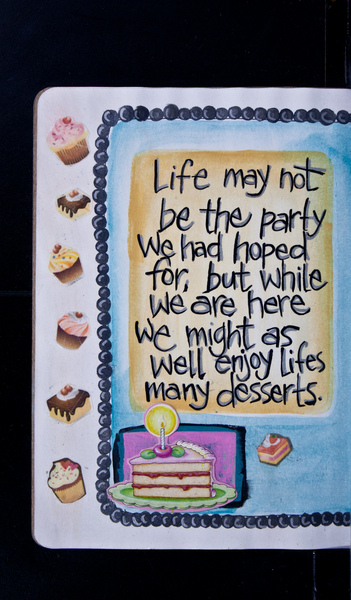 Life may not
be the party
we had hoped
for, but while
we are here
we might as
well enjoy lifes
many desserts.